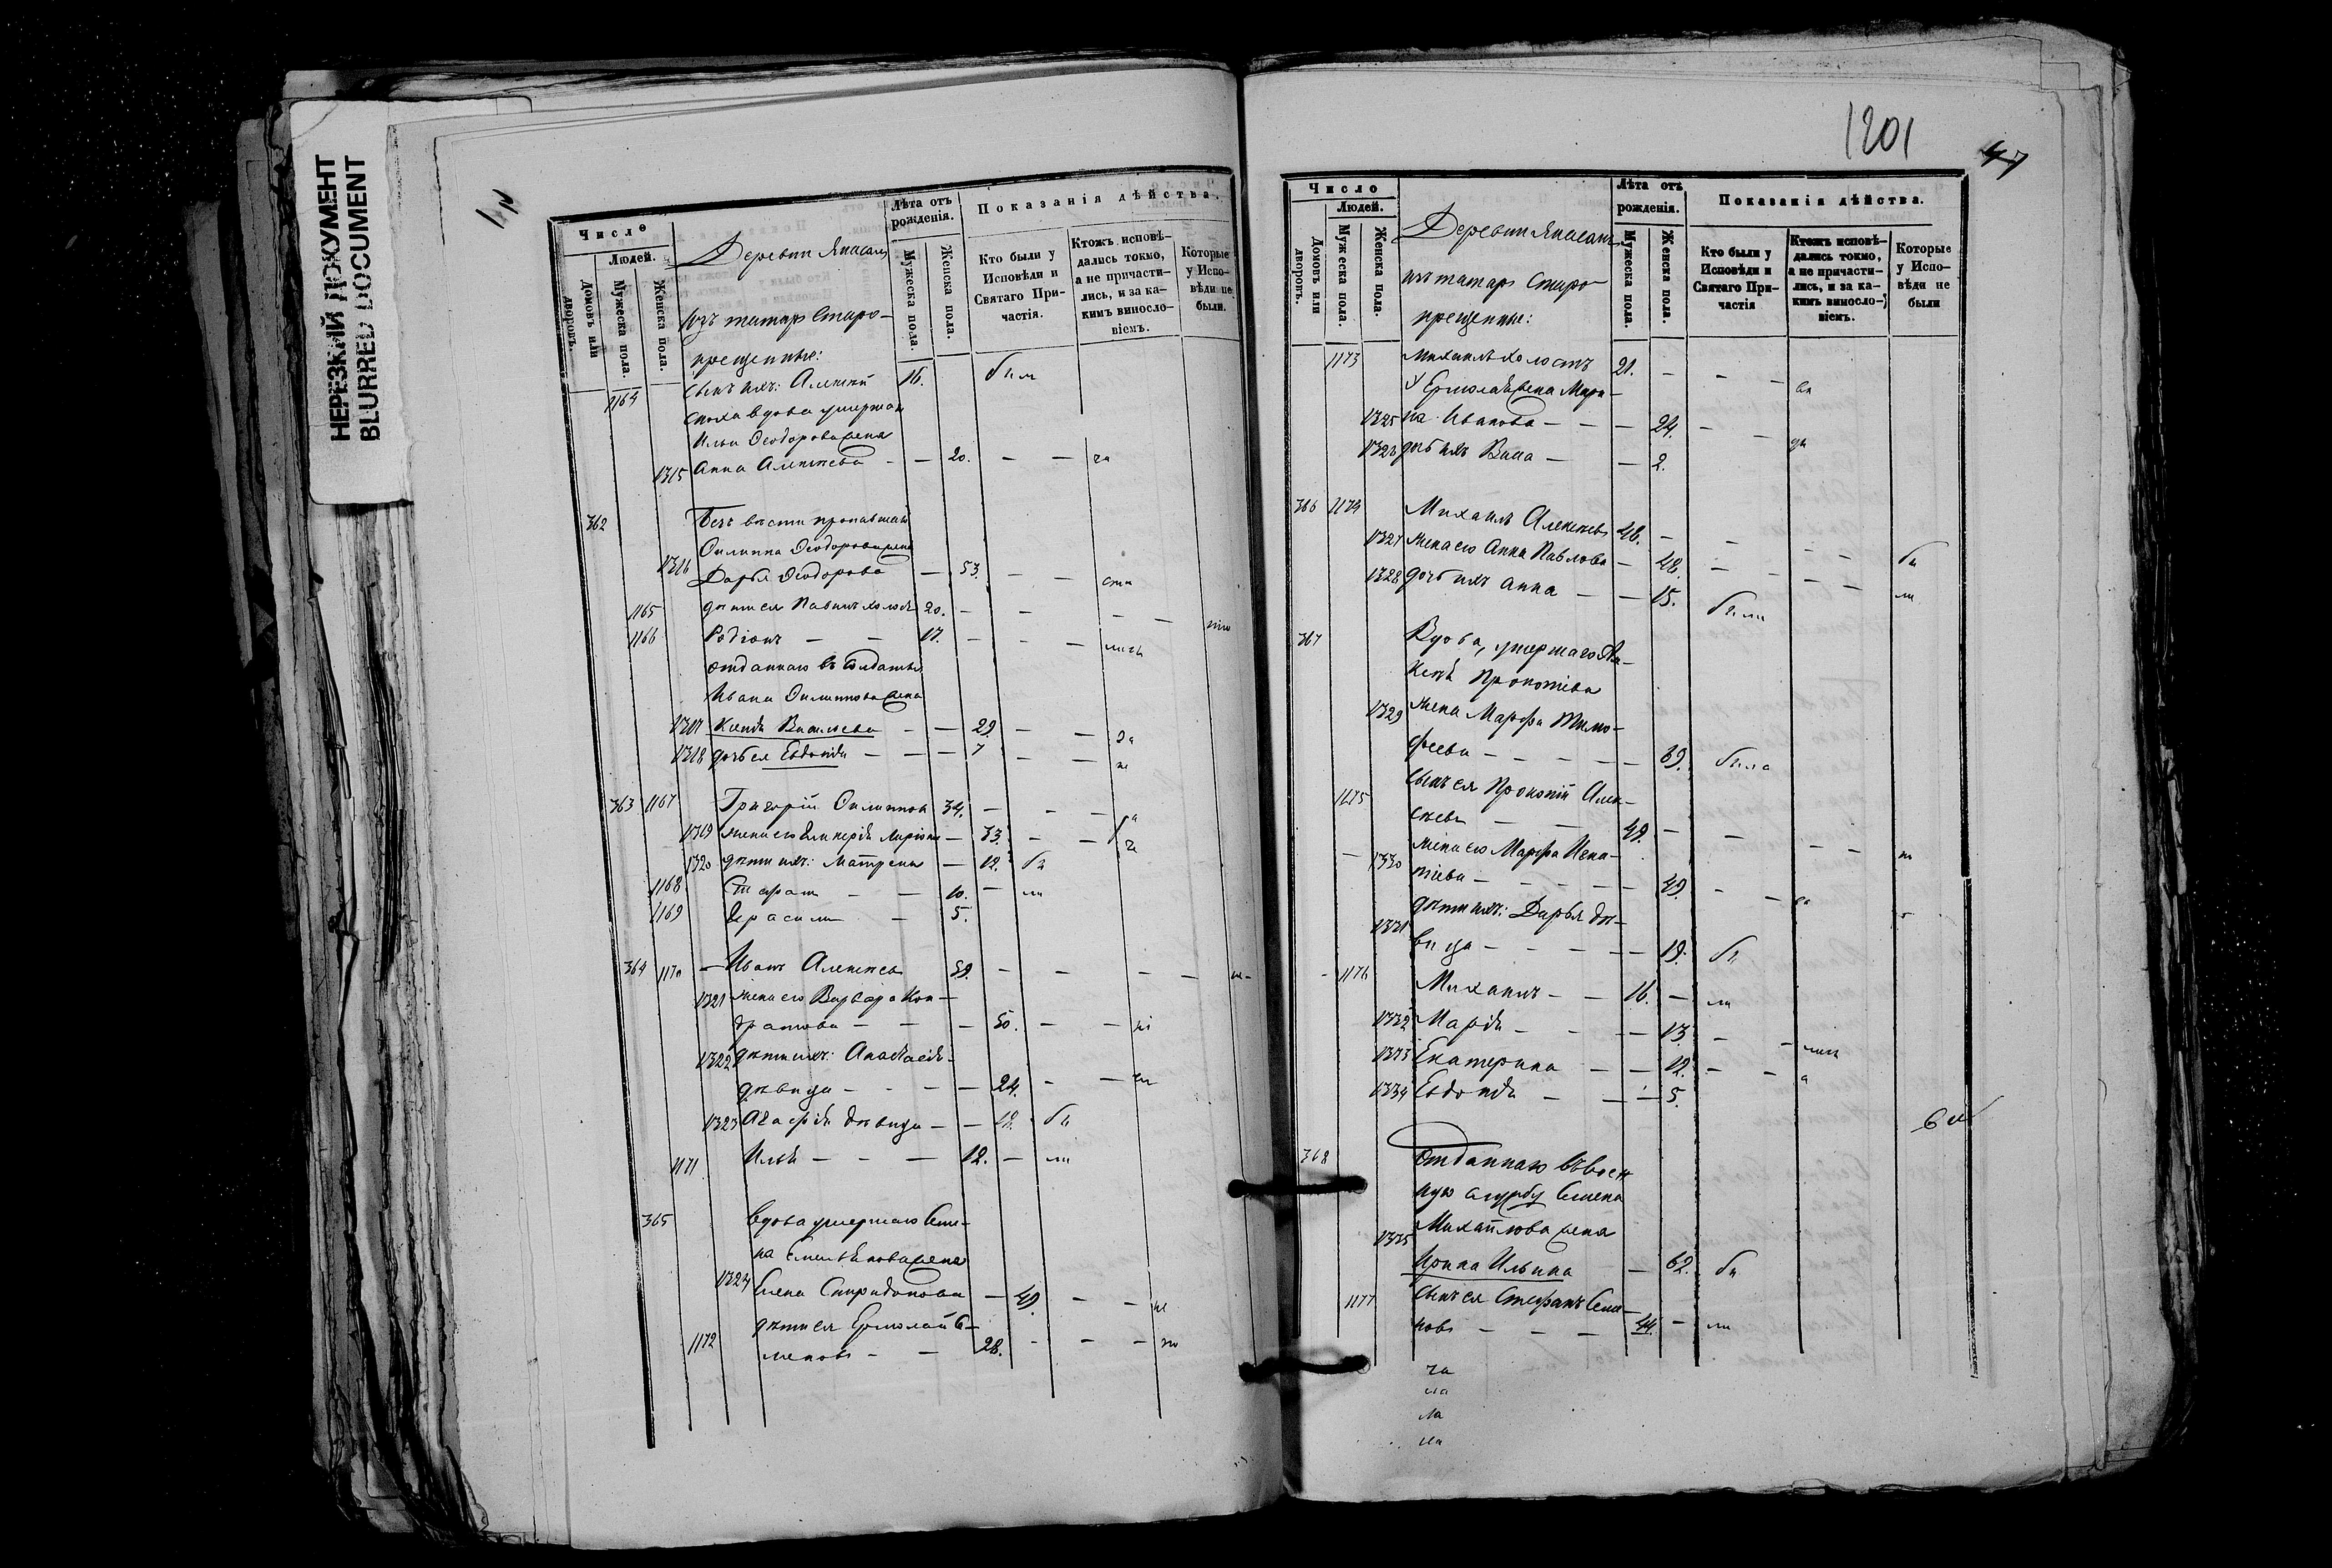 НЕРЕЗКИЙ ДОКУМЕНТ
BLURRED DOCUMENT
Число
Людей.
Домовъ или дворовъ.
Мужеска пола.
Женска пола.
Лѣта отъ рожденія.
Мужеска пола.
Женска пола.
Показанія дѣйства.
Кто были у Исповѣди и Святаго Причастія.
Ктожъ исповѣдались токмо, а не причастились, и за какимъ винословіемъ.
Которые у Исповѣди не были.
Деревни
изъ татаръ Старо-
крещенные:
1164 сынъ ихъ: Алексѣй 16. были
сноха вдова умершаго
Ильи Ѳеодорова жена
1315 Анна Алексѣева — — 20. — —
362 Безъ вѣсти пропавшаго
Филиппа Ѳеодорова жена
1316 Дарья Ѳеодорова — 53. — —
1165 дѣти ея Павелъ холостъ 20. — — — —
1166 Родіонъ — — 17. — — —
отданнаго въ солдаты
Ивана Филиппова жена
1317 Ксенія Васильева — — 29. — —
1318 дочь ея Евдокія — — — 7 — —
363 1167 Григорій Филипповъ 34. — — —
1319 жена его Гликерія — 33. — —
1320 дѣти ихъ: Матрена — 12. бы
1168 Стефанъ — — 10. — ли
1169 Герасимъ — 5.
364 1170 — Иванъ Алексѣевъ 59. — — — —
1321 жена его Варвара Кон-
дратова — — — 50. — —
1322 дѣти ихъ: Анастасія
дѣвица — — — — 24. — —
1323 Агафія дѣвица — — 18. бы
1171 Илья — — — 12. — ли
365 вдова умершаго Семе-
на Емельянова жена
1324 Елена Спиридонова — 49. — —
1172 дѣти ея Ермолай Се-
меновъ — — 28. — — —
1201
47
Число
Людей.
Домовъ или дворовъ.
Мужеска пола.
Женска пола.
Лѣта отъ рожденія.
Мужеска пола.
Женска пола.
Показанія дѣйства.
Кто были у Исповѣди и Святаго Причастія
Ктожъ исповѣдались токмо, а не причастились, и за какимъ винословіемъ.
Которые у Исповѣди не были
Деревни
изъ татаръ Старо-
крещенные:
1173 Михаилъ холостъ 21. — — —
У Ермолая жена Мари-
1325 на Иванова — — — 24. — —
1326 дочь ихъ Васса — — 2.
366 1174 Михаилъ Алексѣевъ 48. — — — —
1327 жена его Анна Павлова — 48. — — — —
1328 дочь ихъ Анна — — 15. были
367 Вдова, умершаго Але-
ксѣя Прокопіева
1329 жена Марфа Тимо-
феева — — — — — 69. была
1175 сынъ ея Прокопій Алек-
сѣевъ — — 49. — — — —
1330 жена его Марфа Игна-
тіева — — — — — 49. — —
1331 дѣти ихъ: Дарья дѣ-
вица — — — — 19. бы
1176 Михаилъ — — 16. — ли
1332 Марія — — — 13. — —
1333 Екатерина — — — 12. — —
1334 Евдокія — — — 5.
368 Отданнаго въ воен
ную службу Семена
Михайлова жена
1335 Ирина Ильина — 62. бы
1177 сынъ ея Стефанъ Семе-
новъ — — — 44. — ли